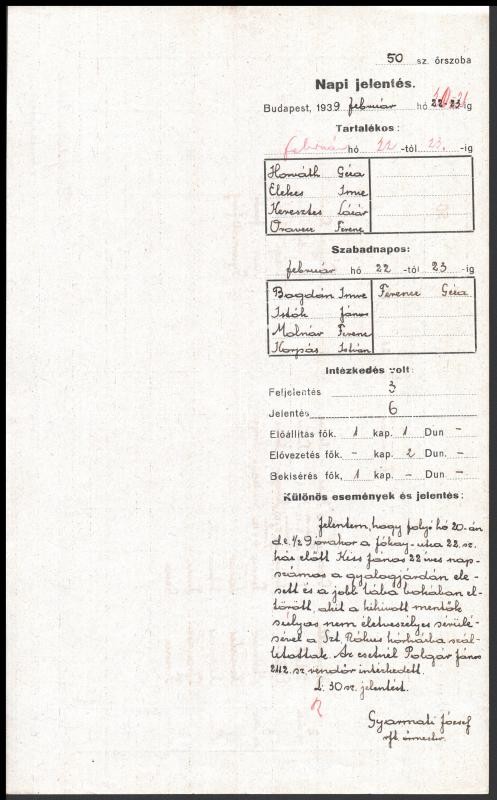 50 sz. őrszoba
Napi jelentés.
Budapest, 1939 február hó 22-23-ig
Tartalékos:
február hó 22 -tól 23. -ig
Horváth Géza
Elekes Imre
Keresztes Lázár
Oravecz Ferenc
Szabadnapos:
február hó 22 -tól 23 -ig
Bogdán Imre Ferencz Géza
Istók János
Molnár Ferenc
Korpás István
Intézkedés volt:
Feljelentés 3
Jelentés 6
Előállítás fők. 1 kap. 1 Dun -
Elővezetés fők. - kap. 2 Dun. -
Bekisérés fők, 1 kap. - Dun -
Különös események és jelentés:
Jelentem, hogy folyó hó 20.-án
d.e. 1/2 9 órakor a Jókay-utca 22. sz.
ház előtt Kiss János 22 éves nap-
számos a gyalogjárdán ele-
sett és a jobb lába bokában el-
törött, akit a kihivott mentők
súlyos nem életveszélyes sérülé-
sével a Szt. Rókus kórházba szál-
litottak. Az esetnél Polgár János
2112. sz. rendőr intézkedett.
L. 30 sz. jelentést.
Gyarmati József